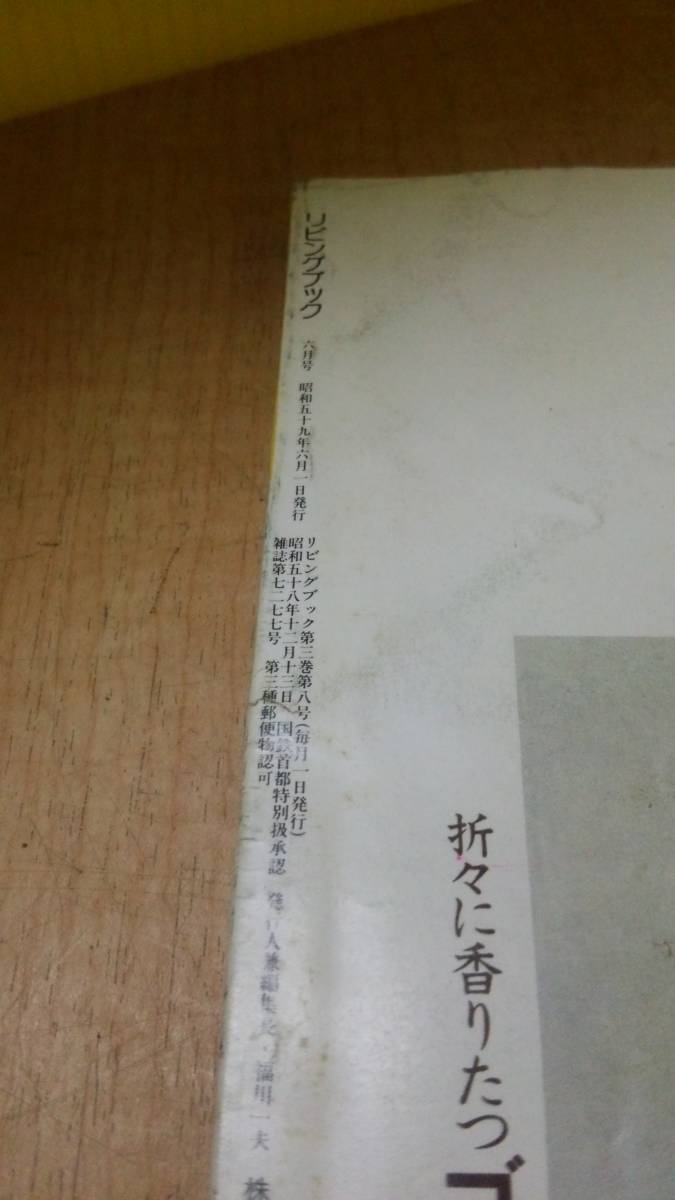 リビングブック
六月号 昭和五十九年六月一日発行
リビングブック第三巻第八号(毎月一日発行)
昭和五十八年十二月十三日 国鉄首都特別扱承認
雑誌第七二七七号 第三種郵便物認可
発行人兼編集長・
一夫
株
折々に香りたつ